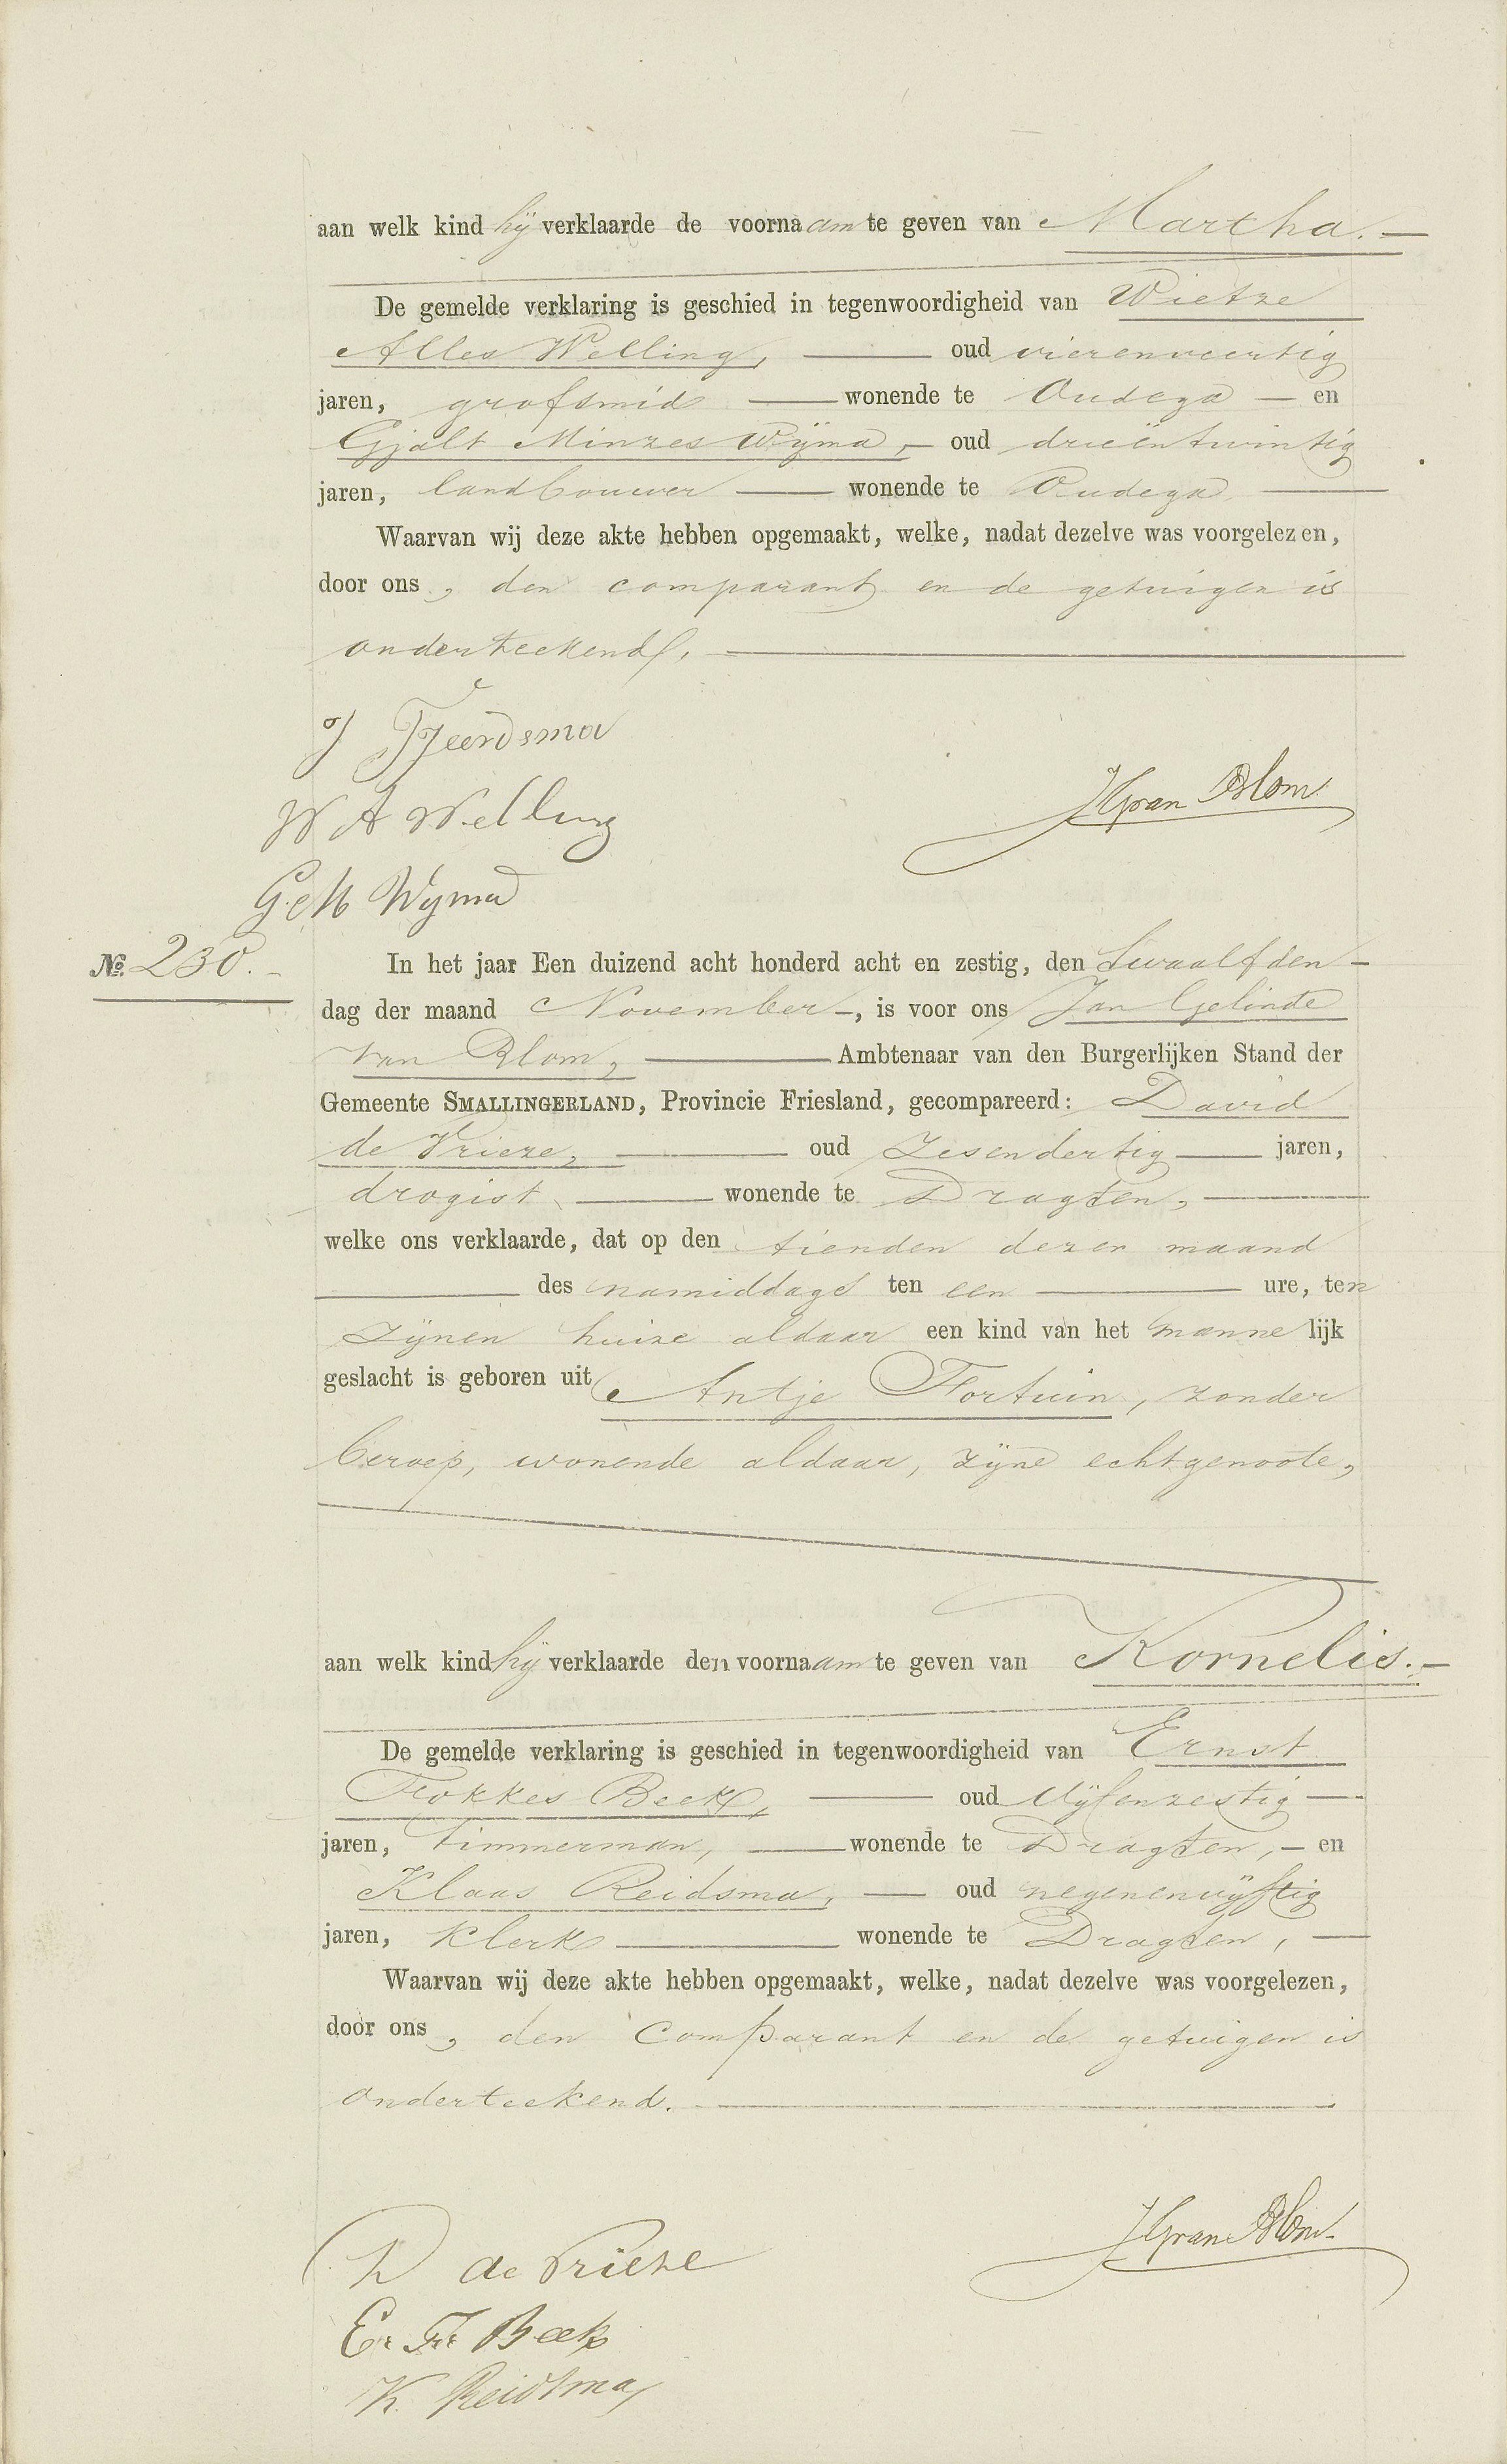 aan welk kind hij verklaarde de voornaam te geven van Martha. —
De gemelde verklaring is geschied in tegenwoordigheid van Wietze
Alles Welling, — oud vierenveertig
jaren, grofsmid — wonende te Oudega — en
Gjalt Minzes Wijma, — oud drieëntwintig
jaren, landbouwer — wonende te Oudega —
Waarvan wij deze akte hebben opgemaakt, welke, nadat dezelve was voorgelezen,
door ons, den comparant en de getuigen is
onderteekend. —
J Tjeerdsma
JGvan Blom
W A Welling
G M Wyma
No. 230. -
In het jaar Een duizend acht honderd acht en zestig, den twaalfden —
dag der maand November —, is voor ons Jan Gelinde
van Blom, — Ambtenaar van den Burgerlijken Stand der
Gemeente SMALLINGERLAND, Provincie Friesland, gecompareerd: David
de Vrieze, — oud zesendertig — jaren,
drogist — wonende te Dragten, —
welke ons verklaarde, dat op den tienden dezer maand
— des namiddags ten een — ure, ten
zijnen huize aldaar een kind van het mannelijk
geslacht is geboren uit Antje Fortuin, zonder
beroep, wonende aldaar, zijne echtgenoote,
aan welk kind hij verklaarde den voornaam te geven van Kornelis. —
De gemelde verklaring is geschied in tegenwoordigheid van Ernst
Fokkes Beek, — oud vijfenzestig —
jaren, timmerman, — wonende te Dragten, — en
Klaas Reidsma, — oud negenenvijftig
jaren, klerk — wonende te Dragten, —
Waarvan wij deze akte hebben opgemaakt, welke, nadat dezelve was voorgelezen,
door ons, den comparant en de getuigen is
onderteekend. —
JGvan Blom
D de Vrieze
E. F. Beek
K. Reidsma